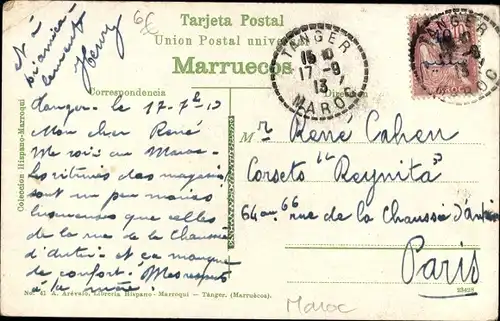 Tarjeta Postal
Union Postal univer
Marruecos
Correspondencia
Dirección
Tanger le 17-7bre 13
Mon cher René
Me voici au Maroc
les vitrines des magasins
sont un peu moins
que celles
de la rue de la Chaussée
d'Antin et ça manque
de confort. Mes respects
à ta mère.
amica-
lement
Henry
TANGER
17-9
13
MAROC
TANGER
MAROC
Mr René Cahen
Corsets "Reynita"
64 au 66 rue de la Chaussée d'Antin
Paris
Coleccion Hispano-Marroqui
No. 41 A. Arévalo, Libreria Hispano-Marroqui - Tánger. (Marruecos).
23428
Maroc